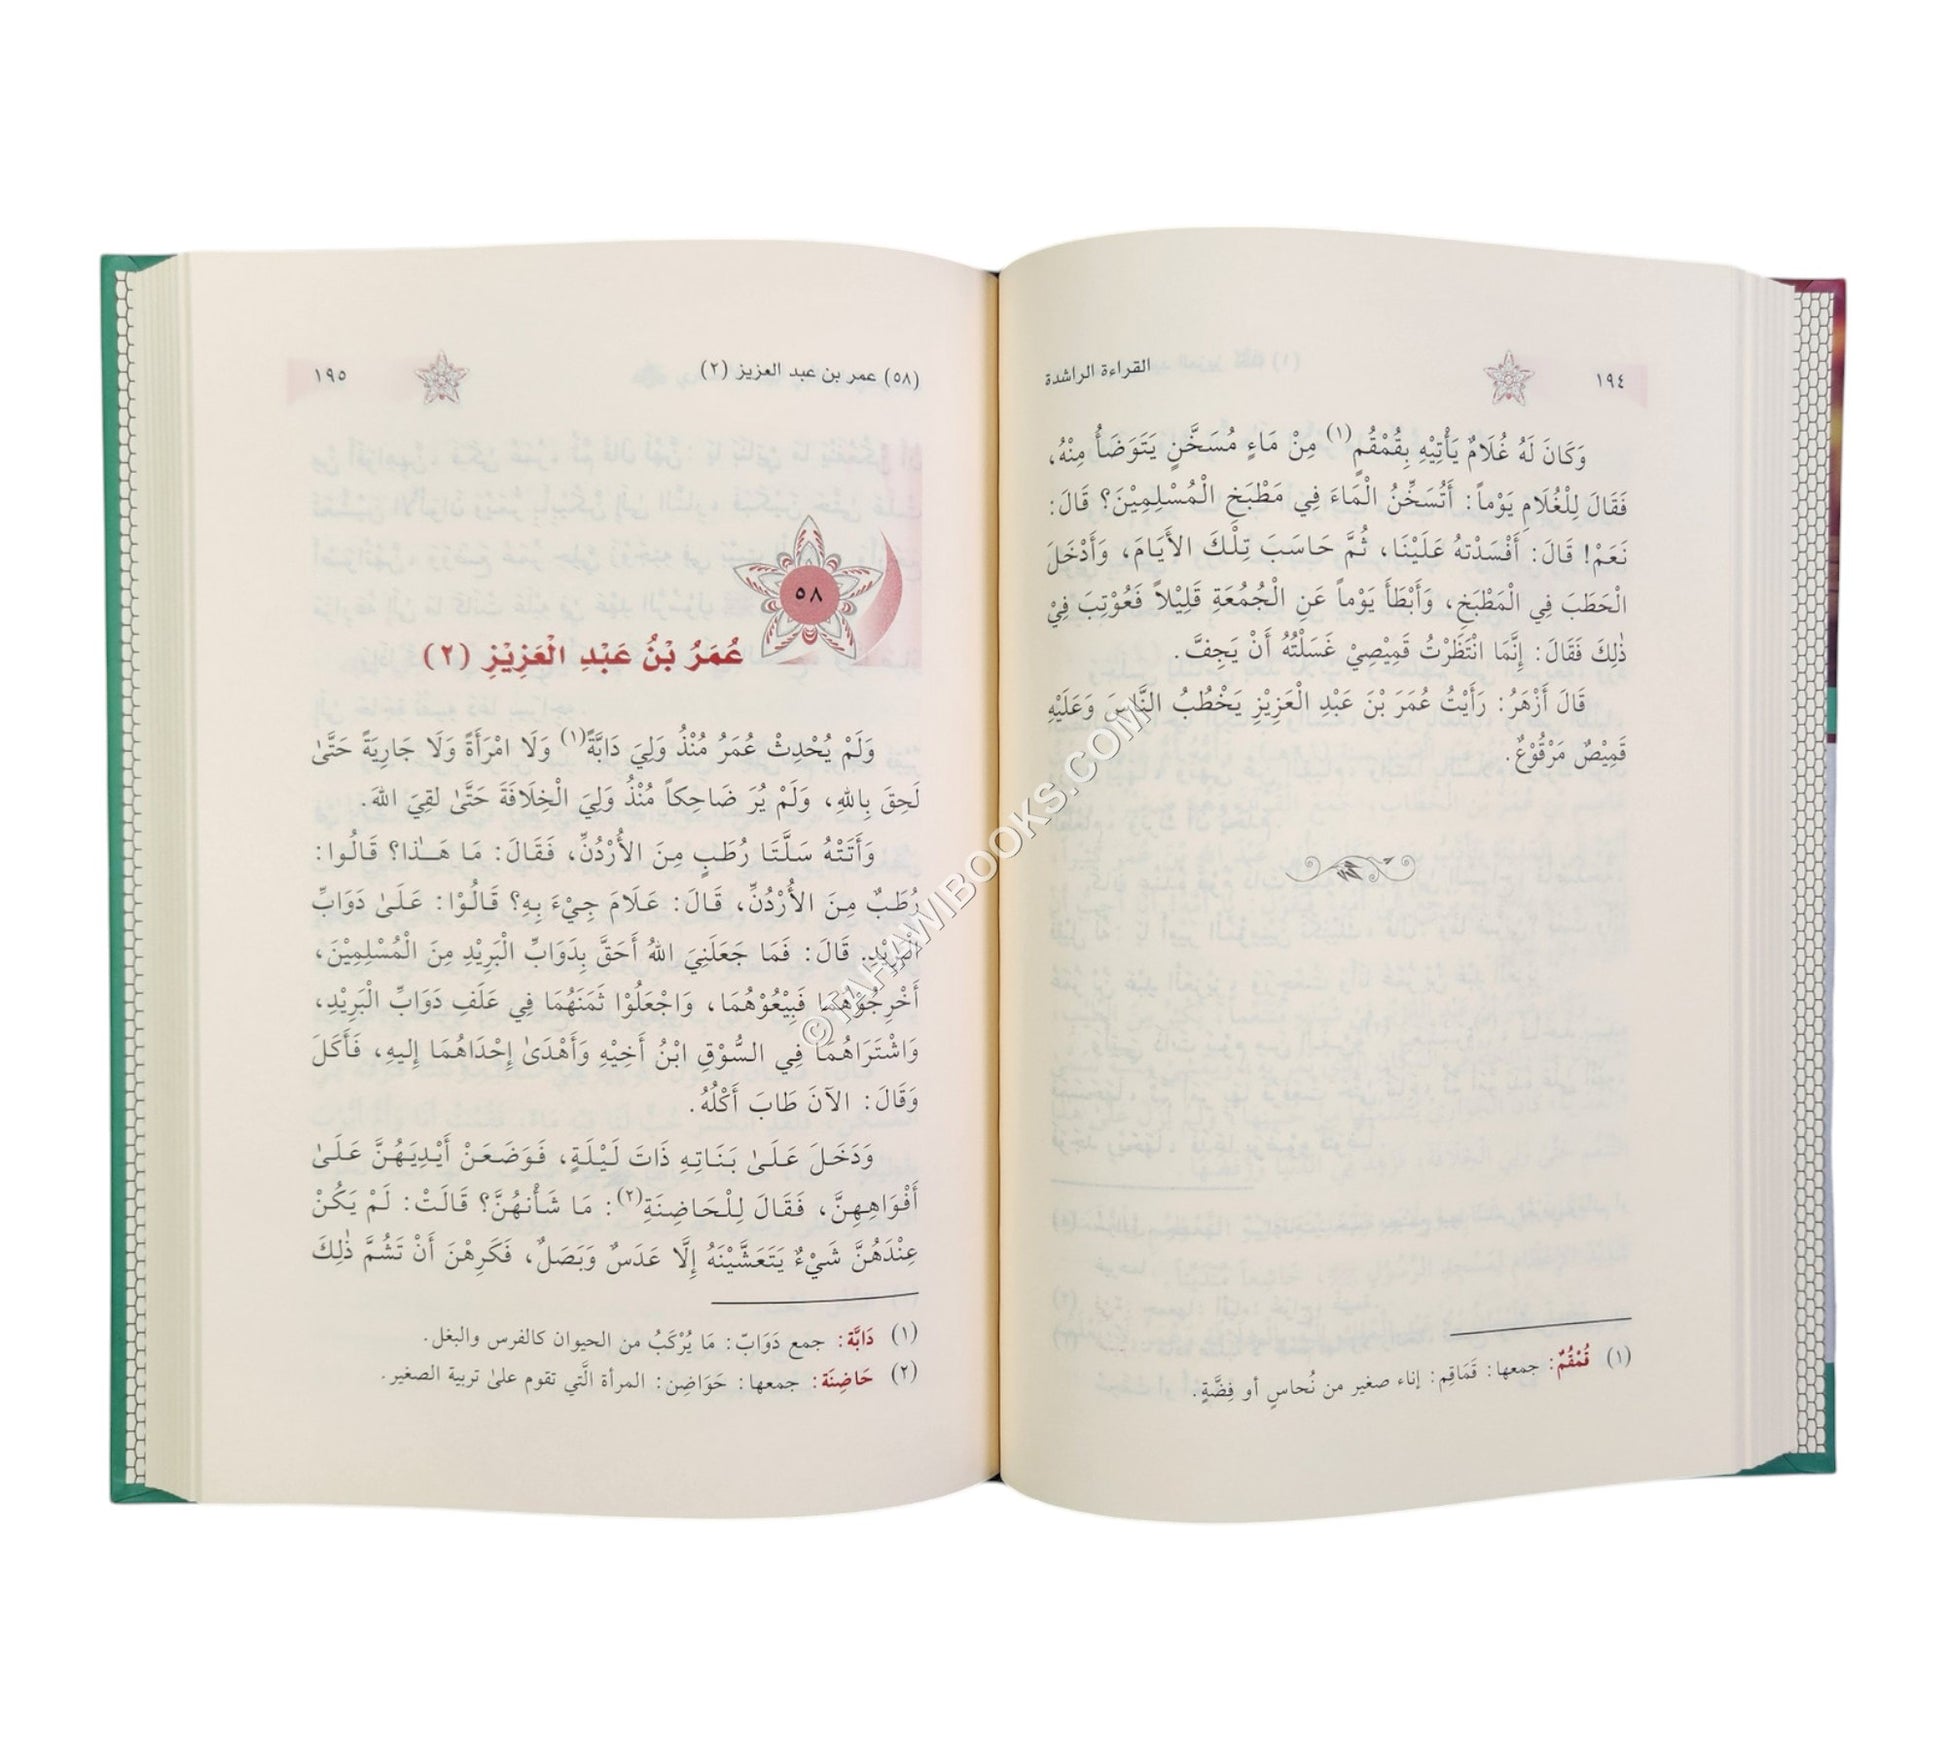 ١٩٤
القراءة الراشدة
وَكَانَ لَهُ غُلَامٌ يَأْتِيْهِ بِقُمْقُمٍ(١) مِنْ مَاءٍ مُسَخَّنٍ يَتَوَضَأُ مِنْهُ،
فَقَالَ لِلْغُلَامِ يَوْماً: أَتُسَخِّنُ الْمَاءَ فِي مَطْبَخِ الْمُسْلِمِيْنَ؟ قَالَ:
نَعَمْ! قَالَ: أَفْسَدْتهُ عَلَيْنَا، ثُمَّ حَاسَبَ تِلْكَ الأَيَامَ، وَأَدْخَلَ
الْحَطَبَ فِي الْمَطْبَخِ، وَأَبْطَأَ يَوْماً عَنِ الْجُمُعَةِ قَلِيْلاً فَعُوْتِبَ فِيْ
ذٰلِكَ فَقَالَ: إِنَّمَا انْتَظَرْتُ قَمِيْصِيْ غَسَلْتُهُ أَنْ يَجِفَّ.
قَالَ أَزْهَرُ: رَأَيْتُ عُمَرَ بْنَ عَبْدِ الْعَزِيْزِ يَخْطُبُ النَّاسَ وَعَلَيْهِ
قَمِيْصٌ مَرْقُوْعٌ.
(١) قُمْقُمٌ: جمعها: قَمَاقِم: إناء صغير من نُحاسٍ أو فِضَّةٍ.
(٥٨) عمر بن عبد العزيز (٢)
١٩٥
٥٨
عُمَرُ بْنُ عَبْدِ الْعَزِيْزِ (٢)
وَلَمْ يُحْدِثْ عُمَرُ مُنْذُ وَلِيَ دَابَّةً(١) وَلَا امْرَأَةً وَلَا جَارِيَةً حَتَّىٰ
لَحِقَ بِاللهِ، وَلَمْ يُرَ ضَاحِكاً مُنْذُ وَلِيَ الْخِلَافَةَ حَتَّىٰ لقِيَ اللهَ.
وَأَتَتْهُ سَلَّتَا رُطَبٍ مِنَ الأُرْدُنِّ، فَقَالَ: مَا هَـٰذا؟ قَالُوا:
رُطَبٌ مِنَ الأُرْدُنِّ، قَالَ: عَلَامَ جِيْءَ بِهِ؟ قَالُوْا: عَلَىٰ دَوَابِّ
الْبَرِيْدِ. قَالَ: فَمَا جَعَلَنِيَ اللهُ أَحَقَّ بِدَوَابِّ الْبَرِيْدِ مِنَ الْمُسْلِمِيْنَ،
أَخْرِجُوْهُمَا فَبِيْعُوْهُمَا، وَاجْعَلُوْا ثَمَنَهُمَا فِي عَلَفِ دَوَابِّ الْبَرِيْدِ،
وَاشْتَرَاهُمَا فِي السُّوْقِ ابْنُ أَخِيْهِ وَأَهْدَىٰ إِحْدَاهُمَا إِليهِ، فَأَكَلَ
وَقَالَ: الآنَ طَابَ أَكْلُهُ.
وَدَخَلَ عَلَىٰ بَنَاتِهِ ذَاتَ لَيْلَةٍ، فَوَضَعَنْ أَيْدِيَهُنَّ عَلَىٰ
أَفْوَاهِهِنَّ، فَقَالَ لِلْحَاضِنَةِ(٢): مَا شَأْنهُنَّ؟ قَالَتْ: لَمْ يَكُنْ
عِنْدَهُنَّ شَيْءٌ يَتَعَشَّيْنَهُ إِلَّا عَدَسٌ وَبَصَلٌ، فَكَرِهْنَ أَنْ تَشُمَّ ذٰلِكَ
(١) دَابَّة: جمع دَوَابّ: مَا يُرْكَبُ من الحيوان كالفرس والبغل.
(٢) حَاضِنَة: جمعها: حَوَاضِن: المرأة الَّتي تقوم علىٰ تربية الصغير.
© TAHAWIBOOKS.COM